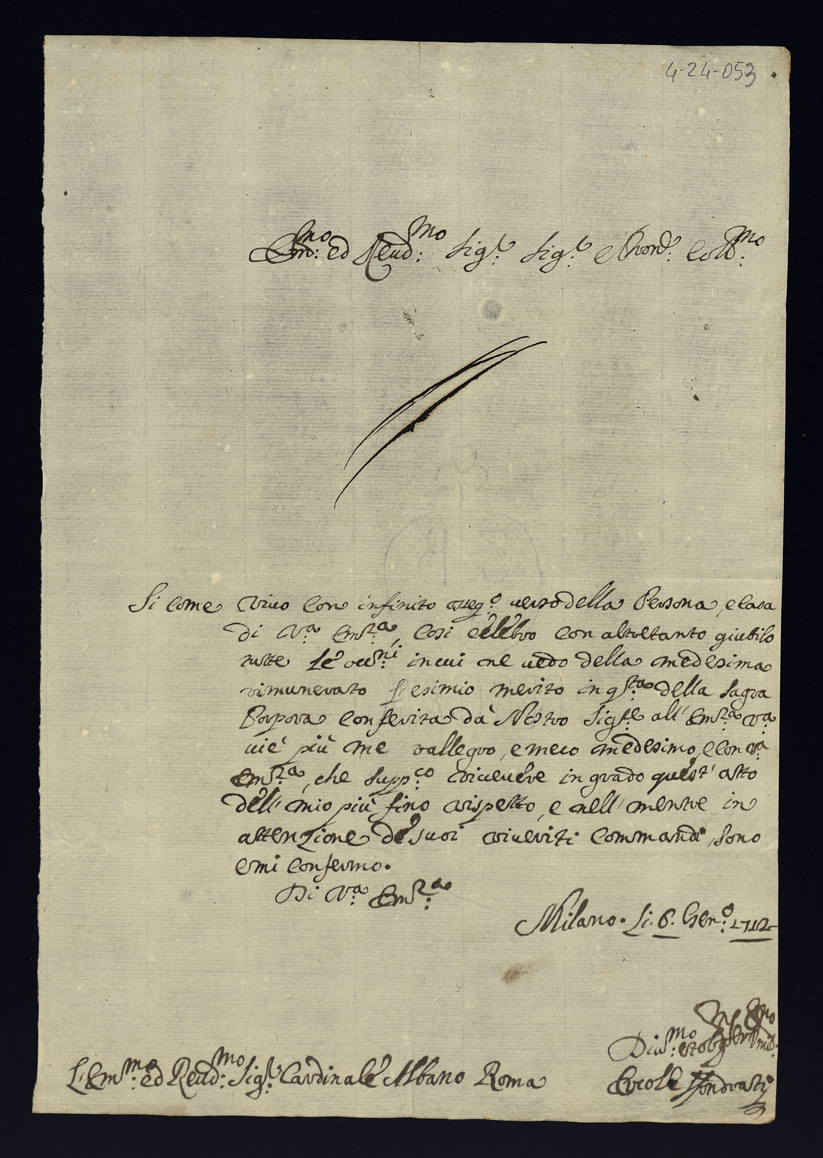 4-24-053
Em:mo ed Reud:mo Sig:r Sig:r e Pron: Coll:mo
Si come viuo con infinito osseq:o uerso della Persona, e Casa
di V:a Em:za, Cosi celebro con altretanto giubilo
tutte le occ:ni in cui ne uedo della medesima
rimunerato l'esimio merito in q:sta della Sagra
Porpora conferita da Nostro Sig:re all' Em:za V:a
uie più me rallegro, e meco medesimo, e con V:a
Em:za, che supp:co riceuere in grado quest' atto
dell' mio più fino rispetto, e nell' mentre in
attenzione de suoi riueriti Commandi, sono
e mi confermo.
Di V:a Em:za
Milano. Li. 6. Gen:o 1712
Diu:mo et obg:mo
L'Em:mo ed Reud:mo Sig:r Cardinale Albano Roma
Ercole